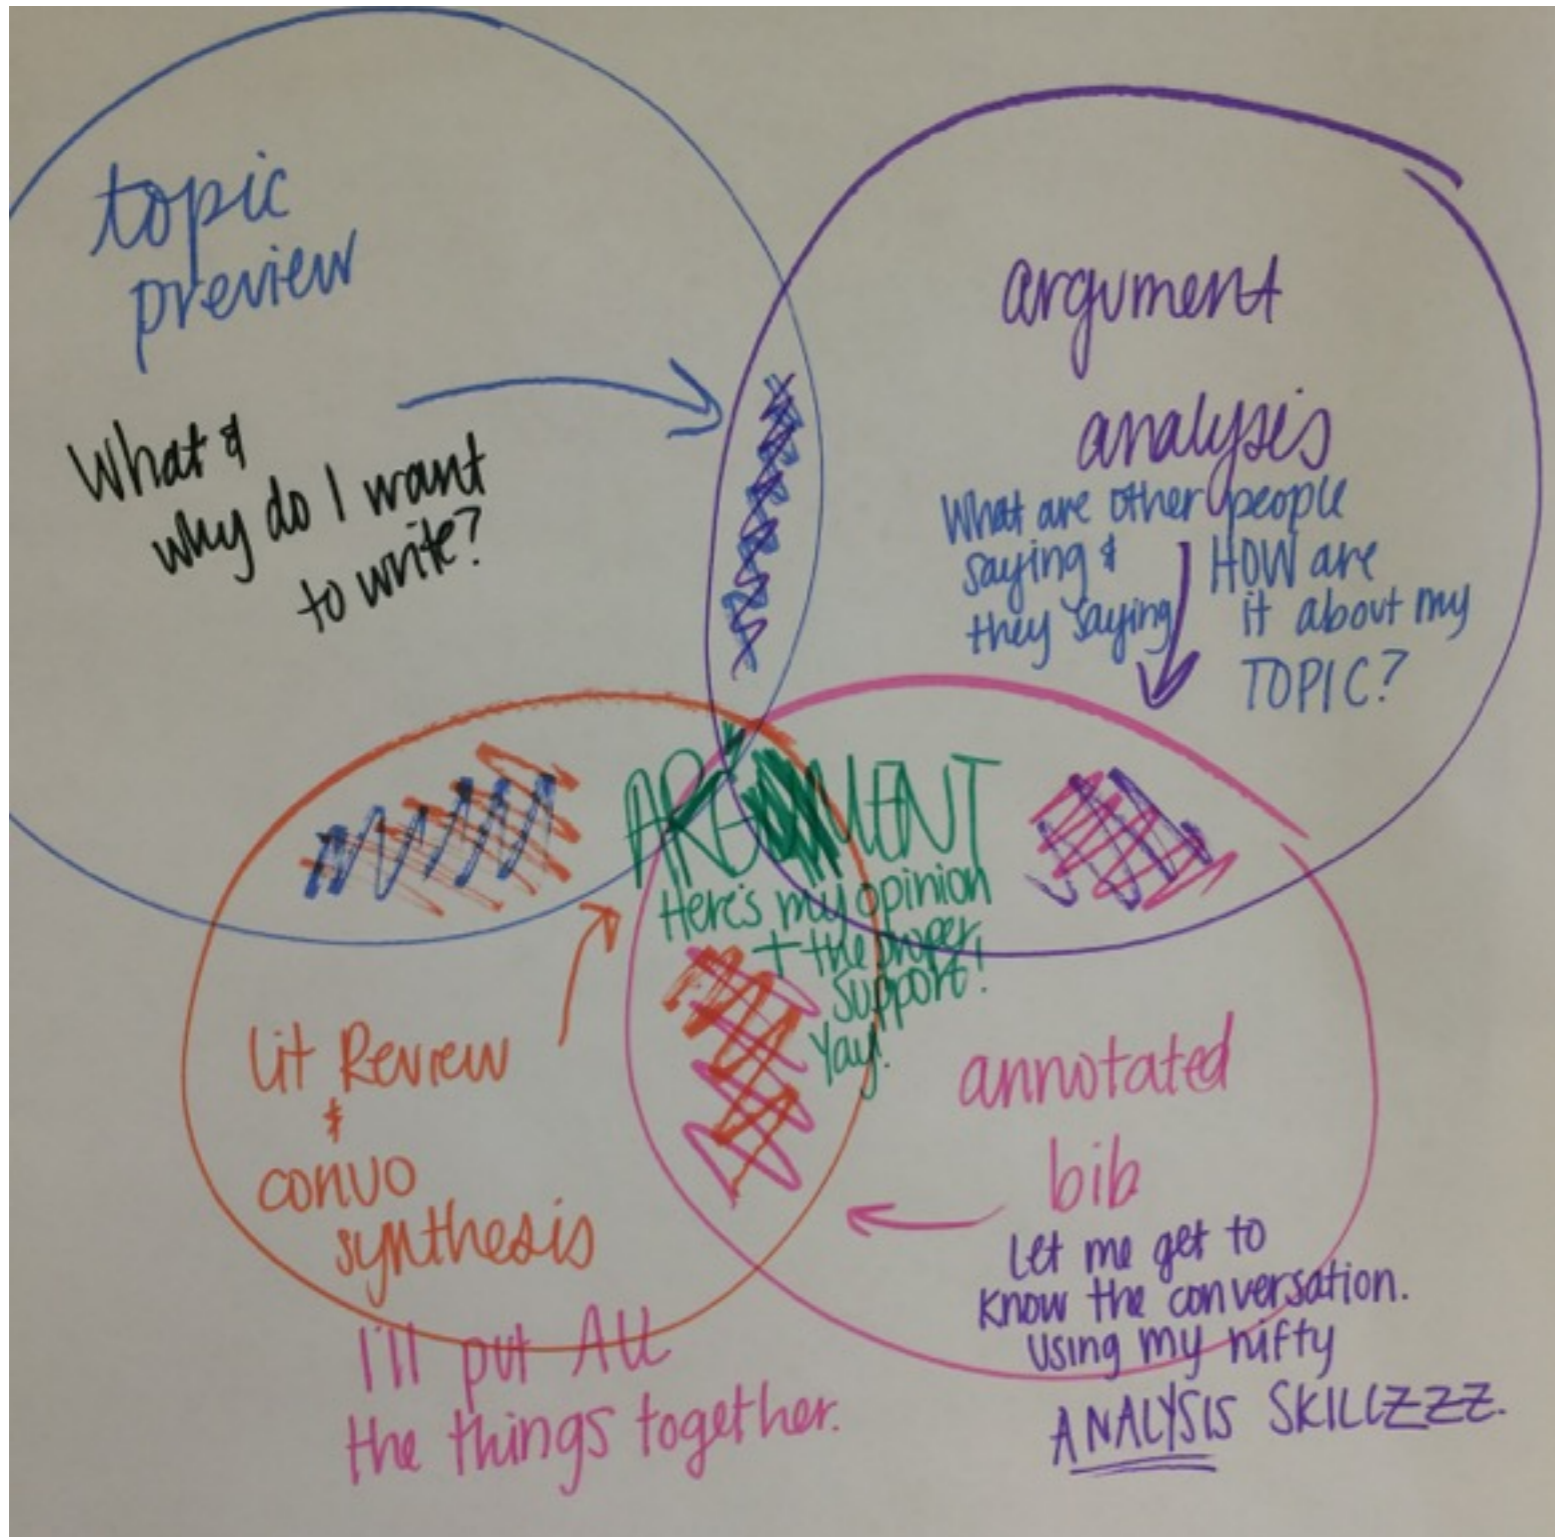 topic
preview
What &
why do I want
to write?
argument
analysis
What are other people
saying & HOW are
they saying it about my
TOPIC?
ARGUMENT
Here's my opinion
+ the proper
support!
Yay!
Lit Review
&
convo
synthesis
I'll put All
the things together.
annotated
bib
Let me get to
know the conversation.
Using my nifty
ANALYSIS SKILLZZZ.